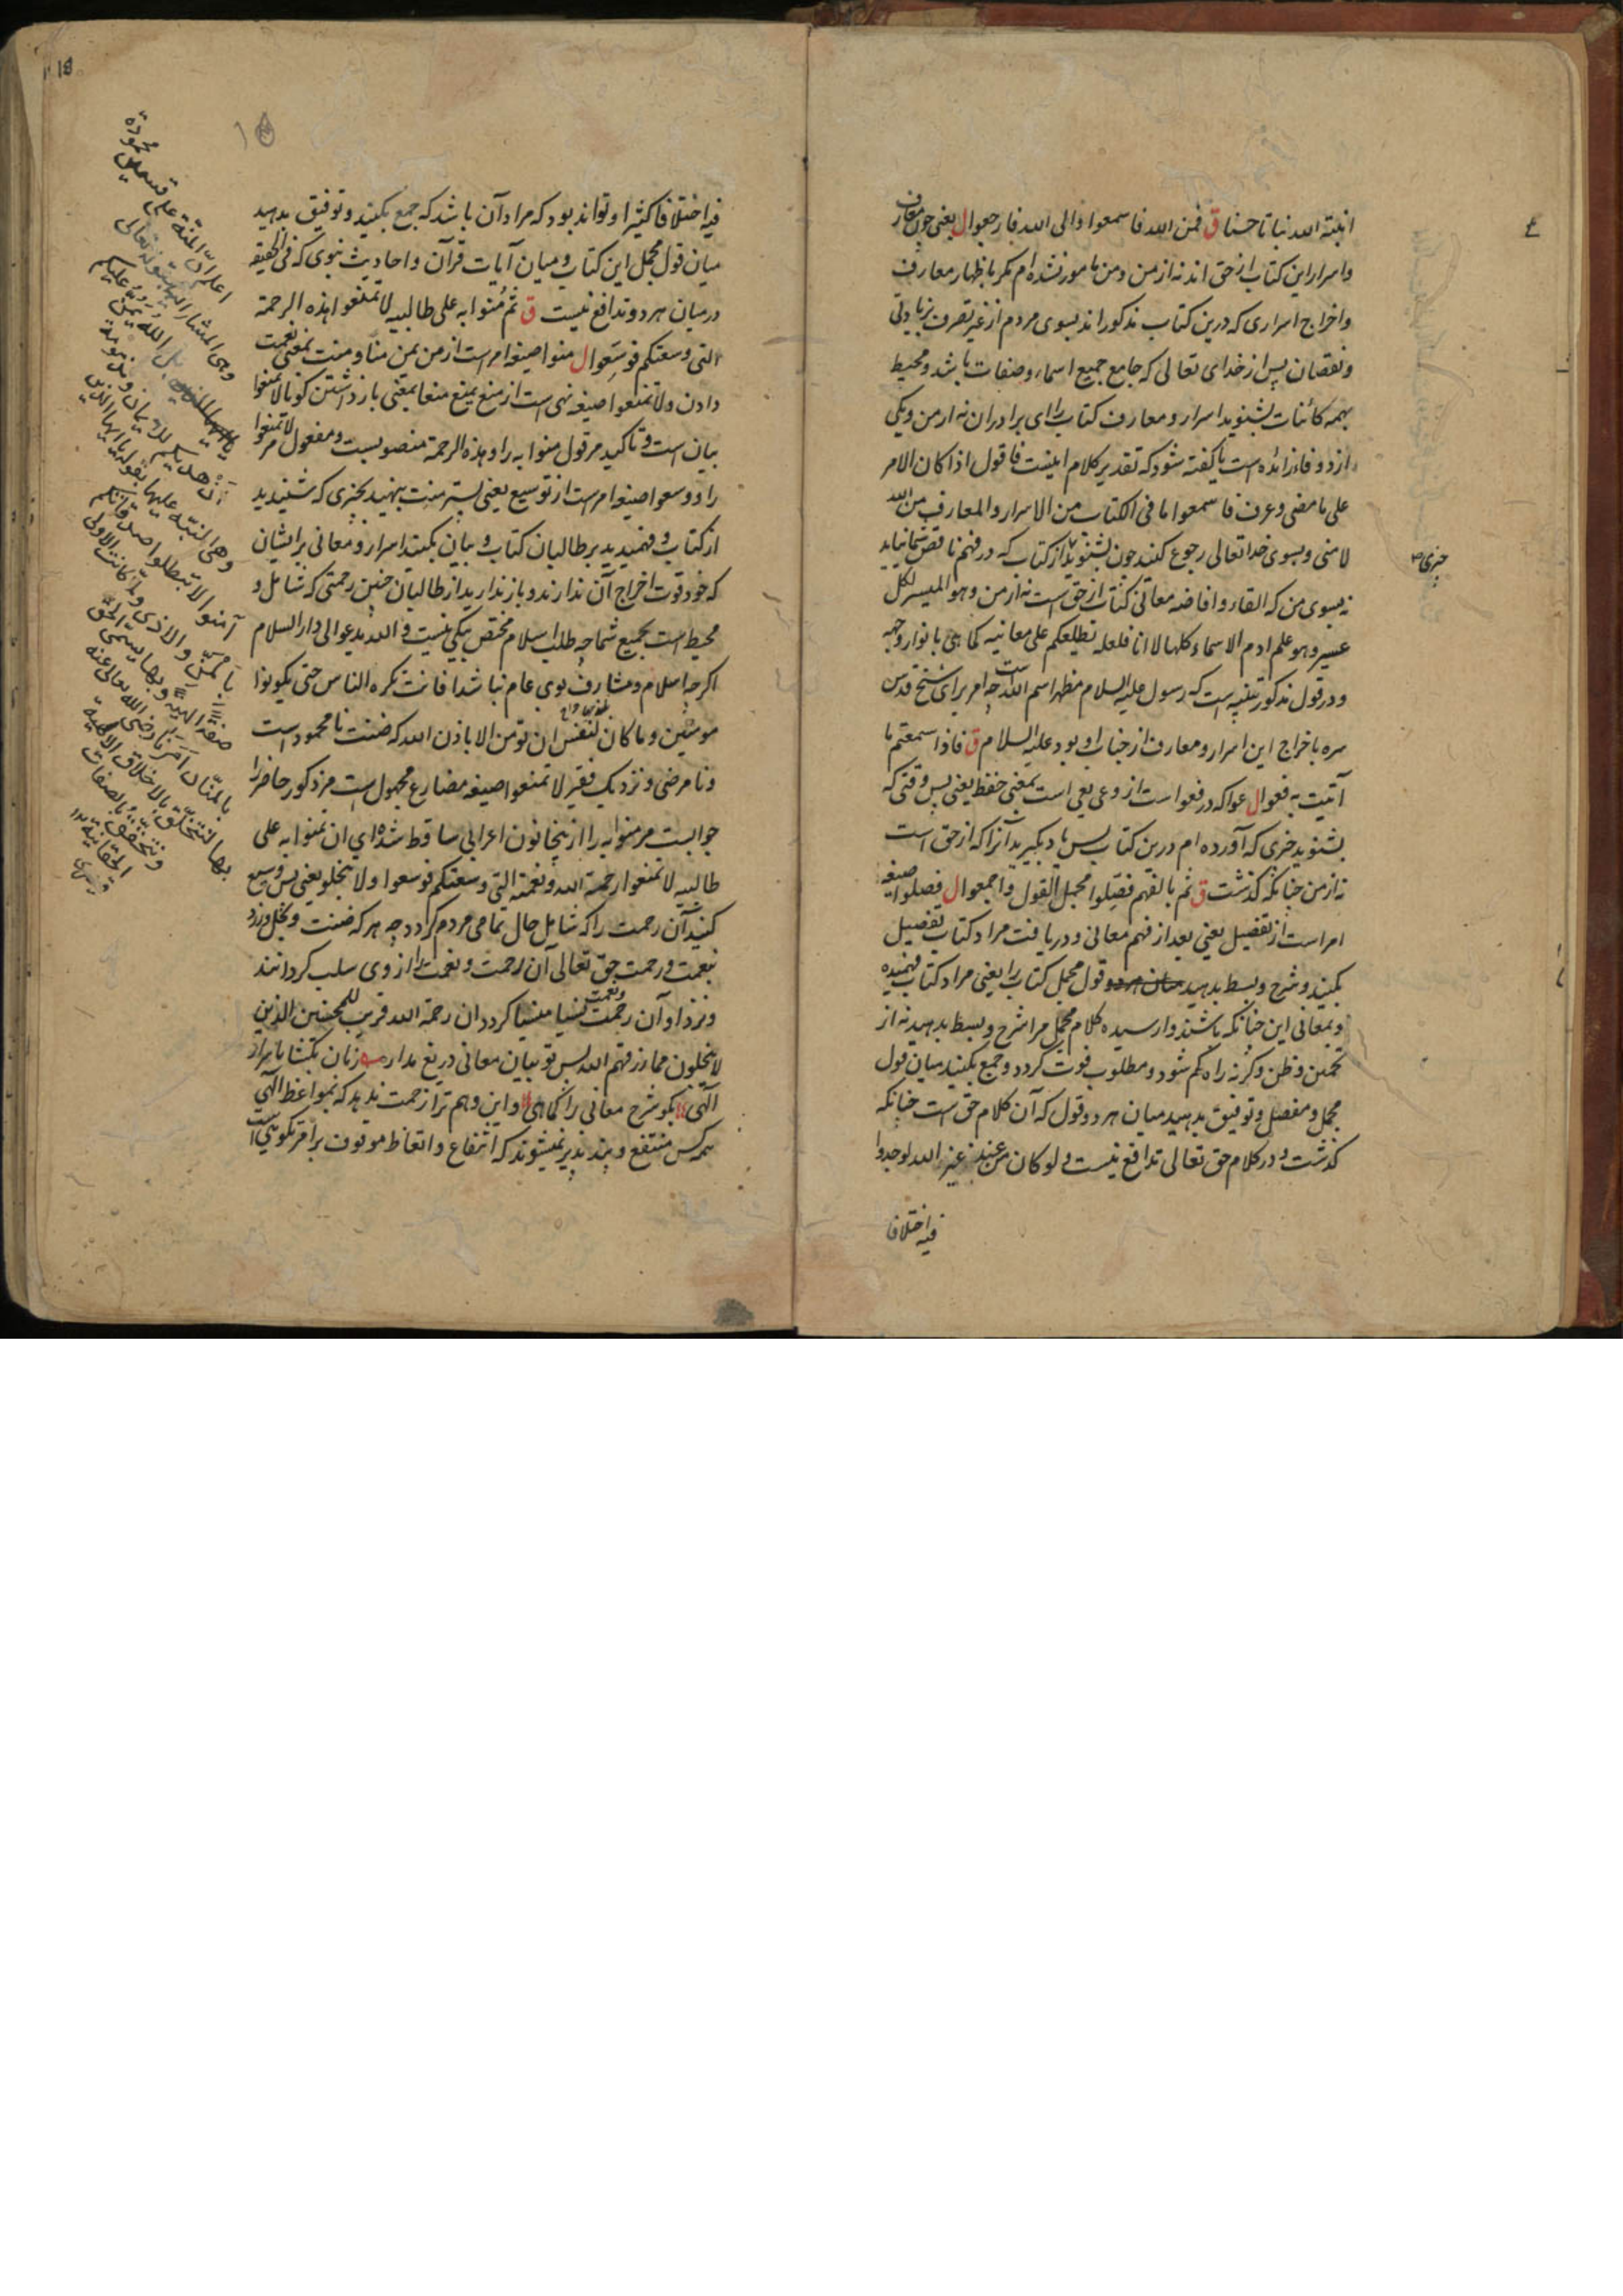 انبته الله نباتا حسنا ق فمن الله فاسمعوا والی الله فارجعوا ل یعنی چون معارف
و اسرار این کتاب از حق اند نه از من و من مامور نشده ام مکر باظهار معارف
و اخراج اسراری که درین کتاب مذکور اند بسوی مردم از غیر تصرف بزیادتی
و نقصان پس از خدای تعالی که جامع جمیع اسماء و صفات باشد و محیط
بهمه کائنات بشنوید اسرار و معارف کتاب را ای برادران نه از من و یکی
از دو فاء زائده است یا کفته شود که تقدیر کلام اینست فاقول اذا کان الامر
علی ما مضی و عرف فاسمعوا ما فی الکتاب من الاسرار و المعارف من الله
لا منی و بسوی خدا تعالی رجوع کنید چون بشنوید از کتاب که در فهم ناقص شما نیاید
چیزی
نه بسوی من که القاء و افاضه معانی کتاب از حق است نه از من و هو المیسر لکل
عسیر و هو علم ادم الاسماء کلها لا انا فلعله یطلعکم علی معانیه کما هی بانوار وجهه
و در قول مذکور تنبیه است که رسول علیه السلام مظهر اسم الله است چه امر برای شیخ قدس
سره باخراج این اسرار و معارف از جناب او بود علیه السلام ق فاذا سمعتم ما
اتیت به فعوا ل عوا که در فعوا است از وعی یعی است بمعنی حفظ یعنی پس وقتی که
بشنوید چیزی که آورده ام درین کتاب پس یاد بکیرید آنرا که از حق است
نه از من چنانکه کذشت ق ثم بالفهم فصّلوا مجمل القول واجمعوا ل فصلوا صیغه
امر است از تفصیل یعنی بعد از فهم معانی و دریافت مراد کتاب تفصیل
بکنید و شرح و بسط بدهید قول مجمل کتاب را یعنی مراد کتاب فهمیده
و بمعانی این چنانکه باشند وارسیده کلام مجمل مرا شرح و بسط بدهید نه از
تخمین و ظن و کرنه راه کم شود و مطلوب فوت کردد و جمع بکنید میان قول
مجمل و مفصل و توفیق بدهید میان هر دو قول که آن کلام حق است چنانکه
کذشت و در کلام حق تعالی تدافع نیست و لو کان من عند غیر الله لوجدوا
فیه اختلافا
فیه اختلافا کثیرا و تواند بود که مراد آن باشد که جمع بکنید و توفیق بدهید
میان قول مجمل این کتاب و میان آیات قرآن و احادیث نبوی که فی الحقیقه
درمیان هر دو تدافع نیست ق ثم مُنّوا به علی طالبیه لا تمنعوا هذه الرحمة
التی وسعتکم فوسّعوا ل منوا صیغه امر است از من یمن منا و منت بمعنی نعمت
دادن و لا تمنعوا صیغه نهی است از منع یمنع منعا بمعنی بازداشتن کویا لا تمنعوا
بیان است و تاکید مر قول منوا به را و هذه الرحمة منصوبست و مفعول مر لا تمنعوا
را و وسعوا صیغه امر است از توسیع یعنی پستر منت بنهید بچیزی که شنیدید
از کتاب و فهمیدید بر طالبان کتاب و بیان بکنید اسرار و معانی بر ایشان
که خود قوت اخراج آن ندارند و باز ندارید از طالبان چنین رحمتی که شامل و
محیط است بجمیع شما چه طلب اسلام مختص بیکی نیست و الله یدعوا الی دار السلام
اکرچه اسلام و مشارف بوی عام نباشد افانت تکره الناس حتی یکونوا
مومنین و ما کان لنفس ان تومن الا باذن الله که ضنت نامحمود است
و نامرضی و نزدیک فقیر لا تمنعوا صیغه مضارع مجهول است مر ذکور حاضر را
جوابست مر منوا به را از ینجا نون اعرابی ساقط شده ای ان تمنوا به علی
طالبیه لا تمنعوا رحمة الله و نعمته التی وسعتکم فوسعوا و لا تبخلو یعنی پس وسیع
کنید آن رحمت را که شامل حال تمامی مردم کردد چه هر که ضنت و بخل ورزد
بنعمت و رحمت حق تعالی آن رحمت و نعمت را از وی سلب کردانند
و نزد او آن رحمت و نعمت نسیا منسیا کردد ان رحمة الله قریب للمحسنین الذین
لا یبخلون مما رزقهم الله پس تو بیان معانی دریغ مدار زبان بکشا باسرار
الهی بکو شرح معانی را کماهی و این وهم ترا زحمت ندهد که بمواعظ الهی
همه کس منتفع و پند پذیر نمیشوند که انتفاع و اتعاظ موقوف بر امر تکوینی است
اعلم ان المنّة علی قسمین محمودة
وهی المشار الیها بقوله تعالی
بل الله یمنّ علیکم
أن هدیکم للایمان ومذمومة
وهی المنبّه علیها بقوله یا ایها الذین
آمنوا لا تبطلوا صدقاتکم
بالمنّ والاذی ولمّا کانت الاولی
صفة الهیّة وبها یسمّی الحق
بالمنّان أمرنا رضی الله تعالی عنه
بها لنتخلّق بالاخلاق الالهیة
ونتحقّق بالصفات
الحقانیة